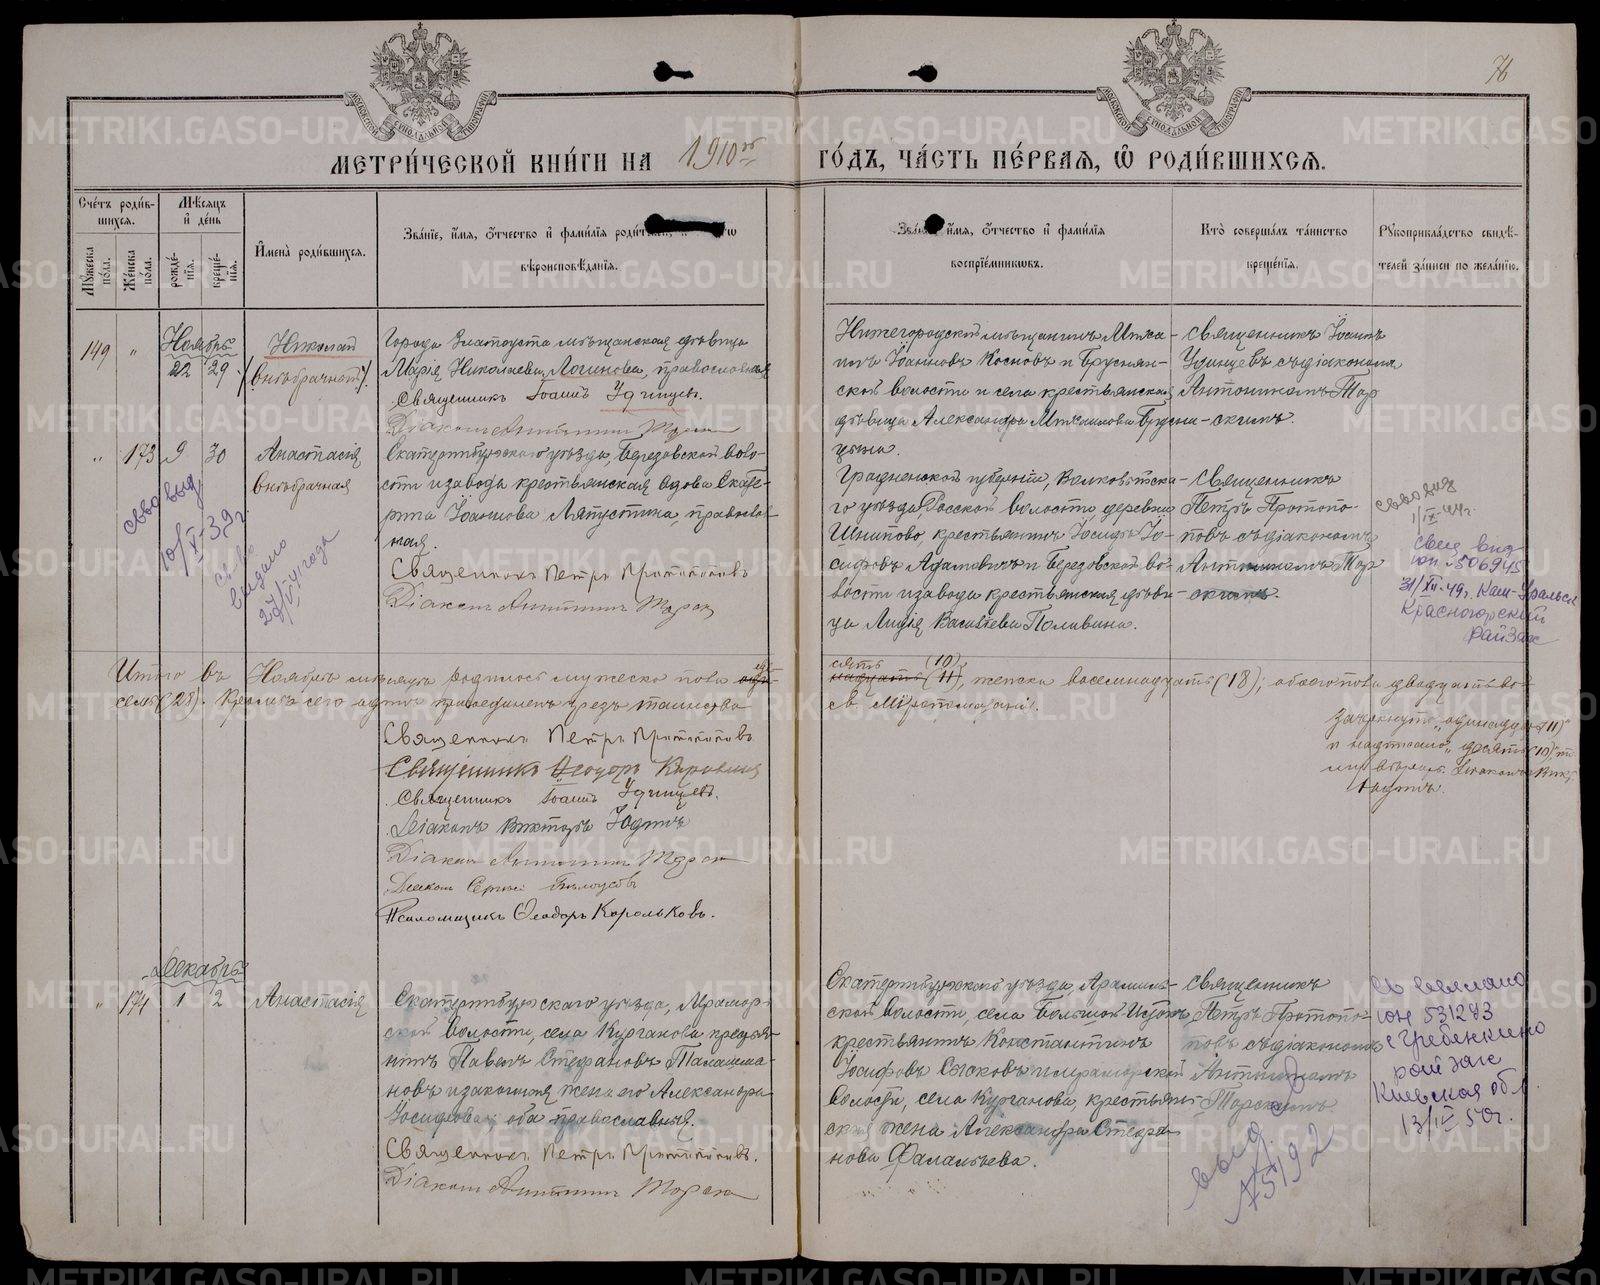 76
МЕТРИ́ЧЕСКОЙ КНИ́ГИ НА 1910 ГО́ДЪ, ЧА́СТЬ ПЕ́РВАЯ, Ѡ РОДИ́ВШИХСЯ.
Сче́тъ роди́в-
шихся.
Му́жеска по́ла.
Же́нска по́ла.
Мѣ́сяцъ и де́нь
рожде́-
нія.
креще́-
нія.
Имена̀ роди́вшихся.
Зва́ніе, и́мя, о́тчество и фами́лія
вѣроисповѣ́данія.
и́мя, о́тчество и фами́лія
воспріе́мниковъ.
Кто̀ соверша́лъ та́инство
креще́нія.
Рукоприкла́дство свидѣ́-
телей за́писи по жела́нію.
149 " Ноябрь 22 29
Николай
(внѣбрачный).
Города Златоуста мѣщанская дѣвица
Марія Николаева Логинова, православная
Священникъ Іоаннъ Удинцевъ.
Діаконъ Антонинъ
Нижегородскій мѣщанинъ Миха-
илъ Іоанновъ Косновъ и Бруснян-
ской волости и села крестьянская
дѣвица Александра Михаилова Брусни-
цына.
Священникъ Іоаннъ
Удинцевъ съ діакономъ
Антониномъ Тор
скимъ.
" 173 9 30
Анастасія
внѣбрачная
Екатеринбургскаго уѣзда, Березовской воло-
сти и завода крестьянская вдова Екате-
рина Іоаннова Ляпустина, православ
ная.
Священникъ Петръ Протопоповъ
Діаконъ Антонинъ
Гродненской губерніи, Волковытска-
го уѣзда, Росской волости деревни
Шнипово, крестьянинъ Іосифъ Іо-
сифовъ Адамовичъ и Березовской во-
лости и завода крестьянская дѣви-
ца Лидія Васильева Поливина.
Священникъ
Петръ Протопо-
повъ съ діакономъ
Антониномъ Тор
скимъ.
10/V-39г.
выдано
27/VI 41 года
1/IX-44г.
свид выд
юп №506945
31/XII-49г. Кам-Уральск
Красногорский
райзагс
Итого въ Ноябрѣ мѣсяцѣ родилось мужеска пола десять (10), женска восемнадцать (18); обоего пола двадцать во-
семь (28). Кромѣ сего одинъ присоединенъ чрезъ таинство св. Мѵропомазанія.
Зачеркнуто „одинадцать (11)"
и надписано „десять (10)"
Юдинъ.
Священникъ Петръ Протопоповъ
Священникъ Ѳеодоръ
Священникъ Іоаннъ Удинцевъ.
Діаконъ Викторъ Юдинъ
Діаконъ Антонинъ
Діаконъ Сергій Бѣлоусовъ
Псаломщикъ Ѳеодоръ Корольковъ.
" 174 Декабрь 1 2
Анастасія
Екатеринбургскаго уѣзда, Мрамор-
ской волости, села Курганова кресть-
нинъ Павелъ Стефановъ Талашма-
новъ и законная жена его Александра
Іосифова, оба православные.
Священникъ Петръ Протопоповъ.
Діаконъ Антонинъ
Екатеринбургскаго уѣзда, Арамиль-
ской волости, села Большой Истокъ
крестьянинъ Константинъ
Іосифовъ Сысковъ и мраморской
волости, села Курганова, крестьян-
ская жена Александра Стефа-
нова Фалалѣева.
Священникъ
Петръ Протопо-
повъ съ діакономъ
Антониномъ
Торскимъ.
юн 531273
с Гребенкино
рай загс
Киевская обл
13/IX 50г.
выд.